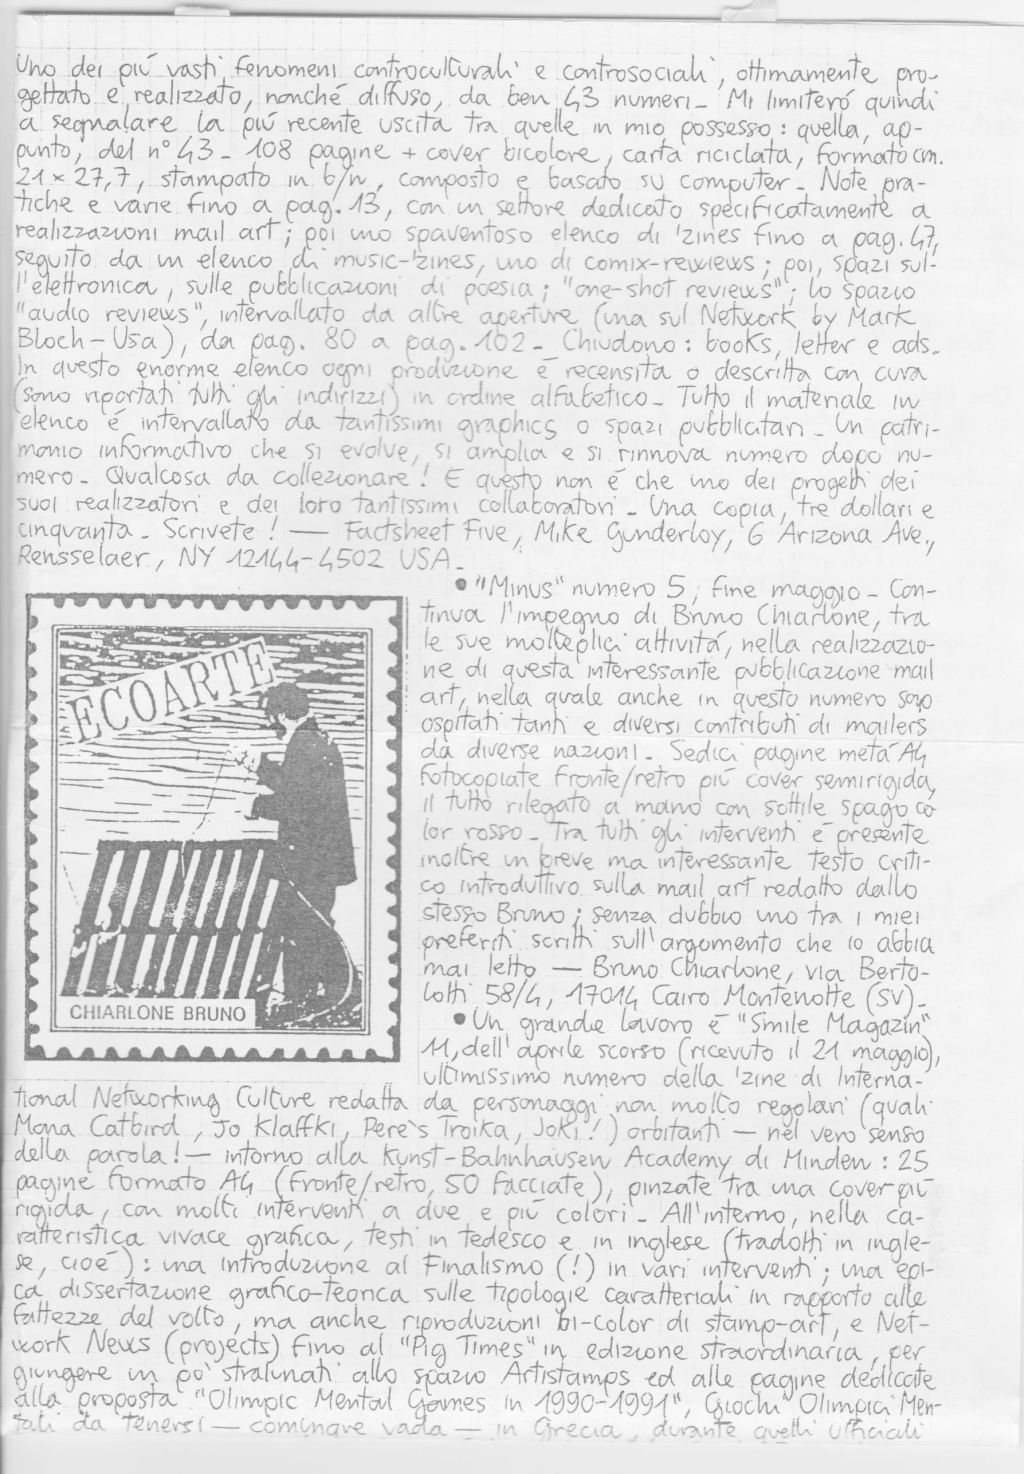 Uno dei piú vasti fenomeni controculturali e controsociali, ottimamente pro-
gettato e realizzato, nonché diffuso, da ben 43 numeri_ Mi limiteró quindi
a segnalare la piú recente uscita tra quelle in mio possesso: quella, ap-
punto, del n° 43_ 108 pagine + cover bicolore, carta riciclata, formato cm.
21 x 27,7, stampato in b/n, composto e basato su computer_ Note pra-
tiche e varie fino a pag. 13, con un settore dedicato specificatamente a
realizzazioni mail art; poi uno spaventoso elenco di 'zines fino a pag. 47,
seguito da un elenco di music-'zines, uno di comix-reviews; poi, spazi sul-
l'elettronica, sulle pubblicazioni di poesia; "one-shot reviews"; lo spazio
"audio reviews", intervallato da altre aperture (una sul Network by Mark
Bloch-Usa), da pag. 80 a pag. 102_ Chiudono: books, letter e ads_
In questo enorme elenco ogni produzione é recensita o descritta con cura
(sono riportati tutti gli indirizzi) in ordine alfabetico_ Tutto il materiale in
elenco é intervallato da tantissimi graphics o spazi pubblicitari_ Un patri-
monio informativo che si evolve, si amplia e si rinnova numero dopo nu-
mero_ Qualcosa da collezionare! E questo non é che uno dei progetti dei
suoi realizzatori e dei loro tantissimi collaboratori_ Una copia, tre dollari e
cinquanta_ Scrivete! — Factsheet Five, Mike Gunderloy, 6 Arizona Ave.,
Rensselaer, NY 12144-4502 USA_
• "Minus" numero 5, fine maggio_ Con-
tinua l'impegno di Bruno Chiarlone, tra
le sue molteplici attivitá, nella realizzazio-
ne di questa interessante pubblicazione mail
art, nella quale anche in questo numero sono
ospitati tanti e diversi contributi di mailers
da diverse nazioni_ Sedici pagine metá A4
fotocopiate fronte/retro piú cover semirigida,
il tutto rilegato a mano con sottile spago co
lor rosso_ Tra tutti gli interventi é presente
inoltre un breve ma interessante testo criti-
co introduttivo sulla mail art redatto dallo
stesso Bruno; senza dubbio uno tra i miei
preferiti scritti sull'argomento che io abbia
mai letto — Bruno Chiarlone, via Berto-
lotti 58/4, 17014 Cairo Montenotte (SV)_
ECOARTE
CHIARLONE BRUNO
• Un grande lavoro é "Smile Magazin"
11, dell'aprile scorso (ricevuto il 21 maggio),
ultimissimo numero della 'zine di Interna-
tional Networking Culture redatta da personaggi non molto regolari (quali
Mona Catbird, Jo Klaffki, Pere's Troika, Joki!) orbitanti — nel vero senso
della parola! — intorno alla Kunst-Bahnhausen Academy di Minden: 25
pagine formato A4 (fronte/retro, 50 facciate), pinzate tra una cover piú
rigida, con molti interventi a due e piú colori_ All'interno, nella ca-
ratteristica vivace grafica, testi in tedesco e in inglese (tradotti in ingle-
se, cioé): una introduzione al Finalismo (!) in vari interventi; una epi-
ca dissertazione grafico-teorica sulle tipologie caratteriali in rapporto alle
fattezze del volto, ma anche riproduzioni bi-color di stamp-art, e Net-
work News (projects) fino al "Pig Times" in edizione straordinaria, per
giungere un pó stralunati allo spazio Artistamps ed alle pagine dedicate
alla proposta "Olimpic Mental Games in 1990-1991", Giochi Olimpici Men-
tali da tenersi — comunque vada — in Grecia, durante quelli ufficiali